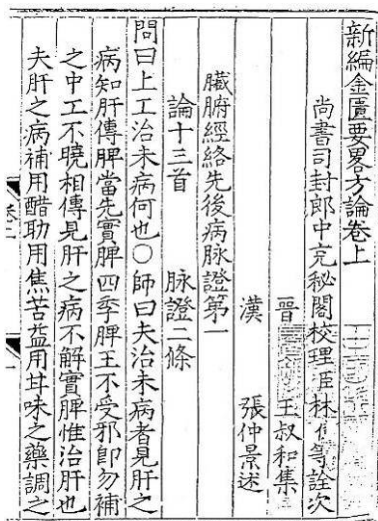 新編金匱要畧方論卷上
尚書司封郎中充秘閣校理臣林億等詮次
晉 王叔和集
漢 張仲景述
臟腑經絡先後病脉證第一
論十三首 脉證二條
問曰上工治未病何也○師曰夫治未病者見肝之
病知肝傳脾當先實脾四季脾王不受邪即勿補
之中工不曉相傳見肝之病不解實脾惟治肝也
夫肝之病補用醋助用焦苦益用甘味之藥調之